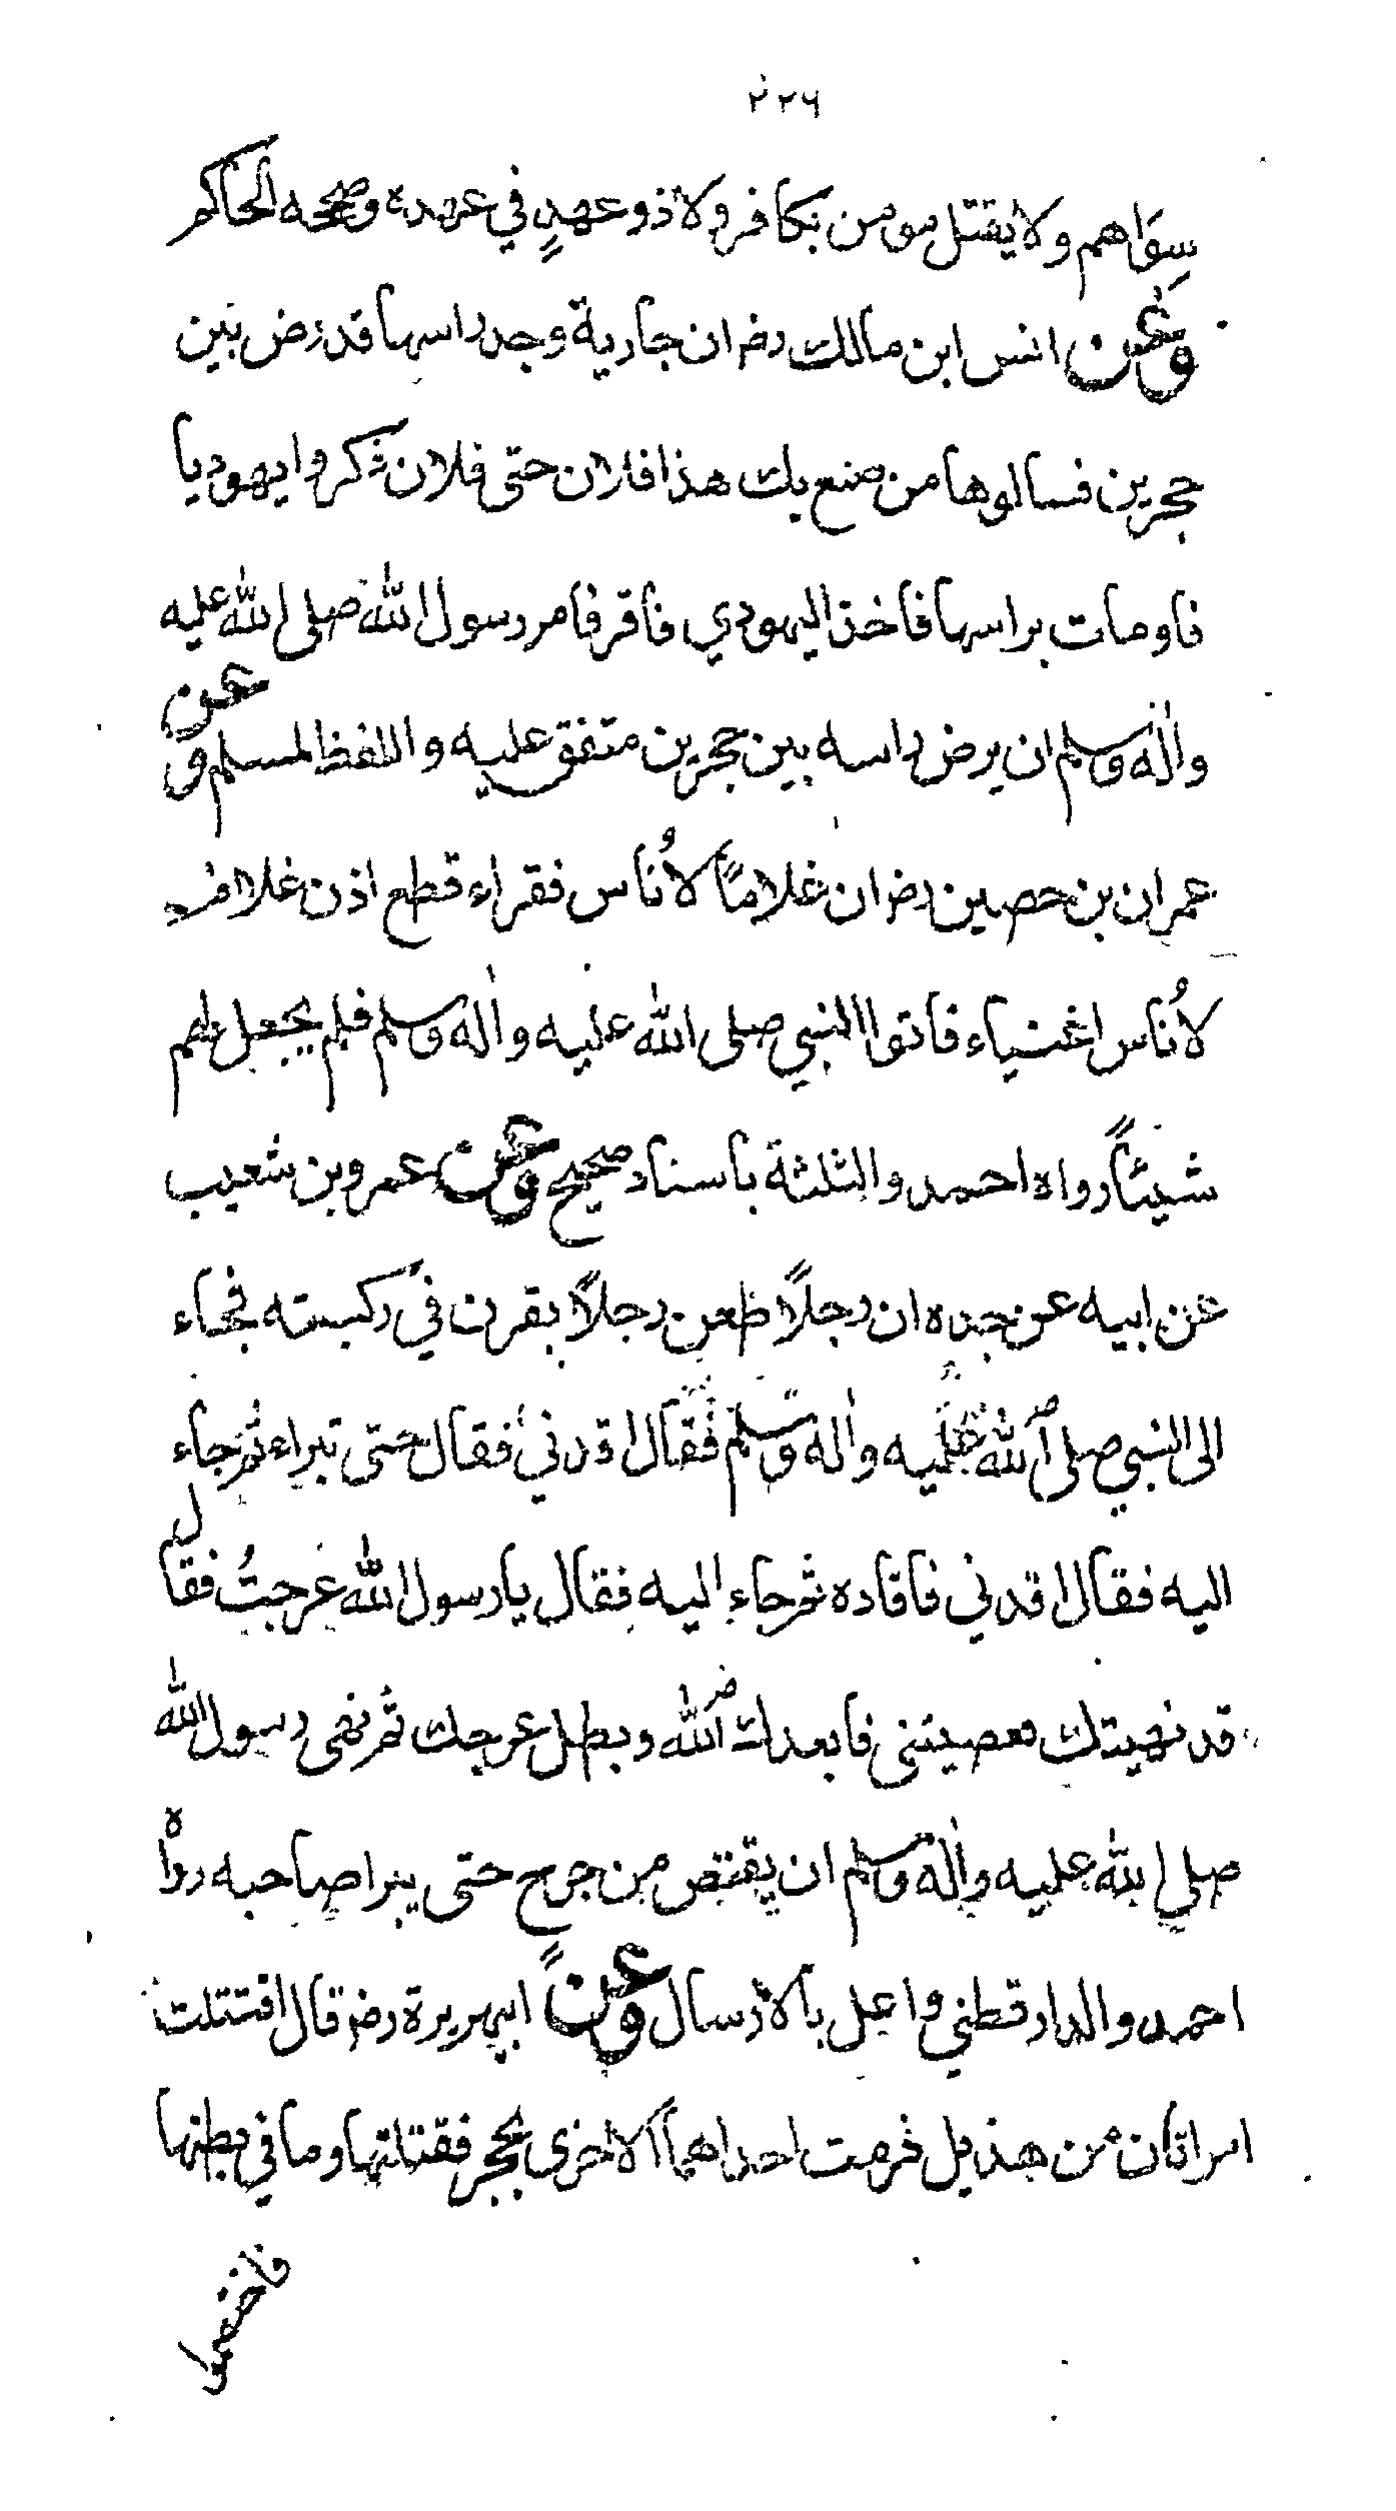 ٢٢٦
سِوَاهم ولا يقتل مومن بكافر ولا ذو عهدٍ في عهده وصححه الحاكم
وعن انس ابن مالك رضـ ان جارية وجد راسها قد رض بين
حجرين فسالوها من صنع بك هذا فلان حتى فلان ذكروا يهوديا
فاومات براسها فاخذ اليهودي فاقر فامر رسول الله صلى الله عليه
واله وسلم ان يرض راسه بين حجرين متفق عليه واللفظ لمسلم وعن
عمران بن حصين رضـ ان غلامًا لأُناس فقراء قطع اذن غلام
لأُناس اغنياء فاتوا النبي صلى الله عليه واله وسلم فلم يجعل لهم
شيئًا رواه احمد والثلثة باسناد صحيح وعن عمرو بن شعيب
عن ابيه عن جده ان رجلاً طعن رجلاً بقرن في ركبته فجاء
الى النبي صلى الله عليه واله وسلم فقال اقدني فقال حتى تبراء ثم جاء
اليه فقال اقدني فاقاده ثم جاء اليه فقال يا رسول الله عرجتُ فقال
قد نهيتك فعصيتني فابعدك الله وبطل عرجك ثم نهى رسول الله
صلى الله عليه واله وسلم ان يقتص من جرح حتى يبرا صاحبه رواه
احمد والدارقطني واعل بالارسال وعن ابيهريرة رضـ قال اقتتلت
امراتان من هذيل فرمت احداهما الاخرى بحجر فقتلتها وما في بطنها
فاختصموا